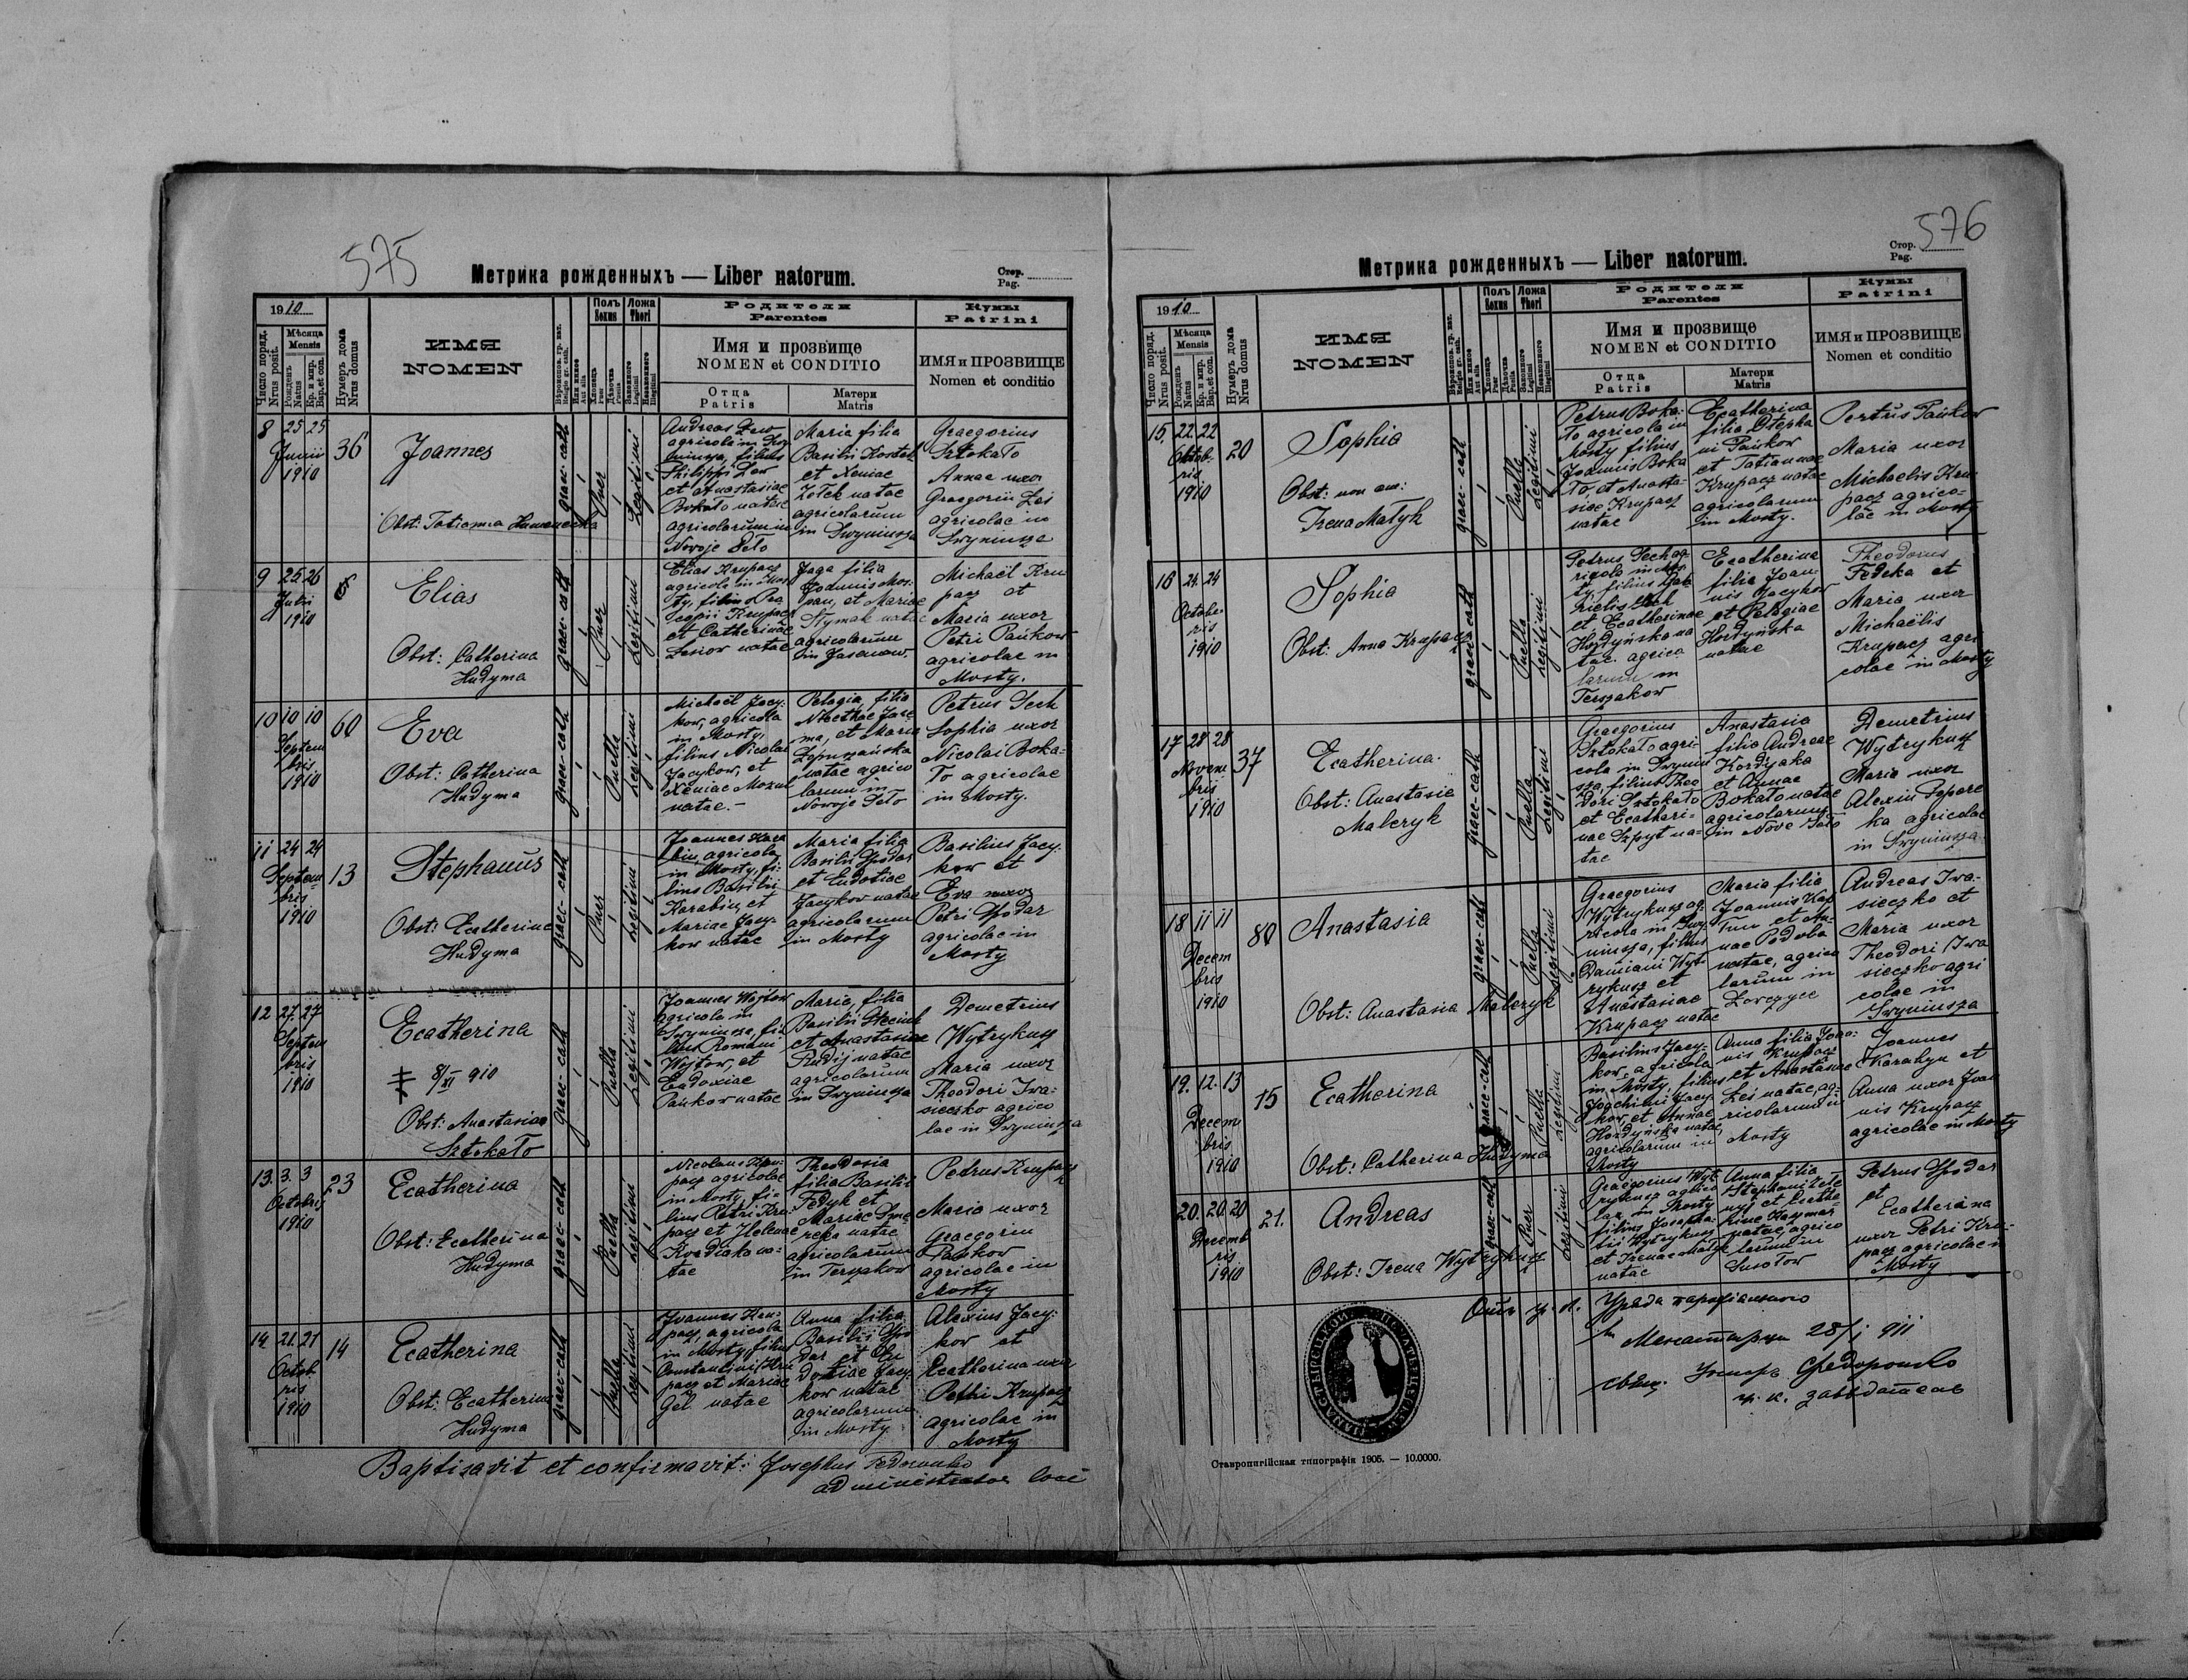 575
Метрика рожденныхъ — Liber natorum.
Стор.
Pag.
1910
Число поряд.
Nrus posit.
Мѣсяца
Mensis
Рожденъ
Natus
Кр. и мѵр.
Bap. et con.
Нумеръ дома
Nrus domus
ИМЯ
NOMEN
Полъ
Sexus
Ложа
Thori
Родители
Parentes
Имя и прозвище
NOMEN et CONDITIO
Отца
Patris
Матери
Matris
Кумы
Patrini
ИМЯ и ПРОЗВИЩЕ
Nomen et conditio
8 25 25
Junii
1910
36
Joannes
Obst: Tatianna
graec-cath
Puer
Legitimi
Andreas Lew
agricola in Swy
niusza, filius
Philippi Lew
et Anastasiae
Bokało natae
agricolarum in
Nowoje Seło
Maria filia
Basilii
et Xeniae
Zołek natae
agricolarum
in Swyniusza
Graegorius
Sztokało
Annae uxor
Graegorii Leś
agricolae in
Swyniusza
9 25 26
Julii
1910
Elias
Obst: Catherina
Hudyma
graec-cath
Puer
Legitimi
Elias Krupacz
agricola in Mos
ty, filius Pro
copii Krupacz
et Catherinae
Lesiow natae
Jaga filia
Joannis Mos-
pan, et Mariae
Stymak natae
agricolarum
in Jasenow.
Michaël Kru
pacz et
Maria uxor
Petri Pańkow
agricolae in
Mosty.
10 10 10
Septem
bris
1910
60
Eva
Obst: Catherina
Hudyma
graec-cath
Puella
Legitimi
Michaël Jacy-
kow, agricola
in Mosty,
filius Nicolai
Jacykow, et
Xeniae Mazur
natae.-
Pelagia, filia
Nicethae Jare
ma, et Maria
Łopuszańska
natae agrico
larum in
Nowoje Seło
Petrus Sech
Sophia uxor
Nicolai Boka-
ło agricolae
in Mosty.
11 24 24
Septem
bris
1910
13
Stephanus
Obst: Ecatherina
Hudyma
graec-cath
Puer
Legitimi
Joannes Kara
bin, agricola
in Mosty, fi-
lius Basilii
Karabin, et
Mariae Jacy-
kow natae
Maria filia
Basilii Spodar
et Eudotiae
Jacykow natae
agricolarum
in Mosty
Basilius Jacy-
kow et
Eva uxor
Petri Spodar
agricolae in
Mosty
12 27 27
Septem
bris
1910
Ecatherina
8/XI 910
Obst: Anastasia
Sztokało
graec-cath
Puella
Legitimi
Joannes Wojtow
agricola in
Swyniusza, fi-
lius Romani
Wojtow, et
Eudoxiae
Pańkow natae
Maria, filia
Basilii Steciuk
et Anastasiae
Rudij natae
agricolarum
in Swyniusza
Demetrius
Wytrykusz
Maria uxor
Theodori Iwa-
sieczko agrico
lae in Swyniusza
13. 3. 3
Octobris
1910
23
Ecatherina
Obst: Ecatherina
Hudyma
graec-cath
Puella
Legitimi
Nicolaus Kru-
pacz agricola
in Mosty, fi-
lius Petri Kru-
pacz et Helenae
Kordiaka na-
tae
Theodosia
filia Basilii
Fedyk et
Mariae Swe
repa natae
agricolarum
in Terszakow
Petrus Krupacz
Maria uxor
Graegorii
Pańkow
agricolae in
Mosty
14 21. 21
Octob
ris
1910
14
Ecatherina
Obst: Ecatherina
Hudyma
graec-cath
Puella
Legitimi
Joannes Kru-
pacz, agricola
in Mosty, filius
Constantini Kru
pacz et Mariae
Gel natae
Anna filia
Basilii Spo
dar et Eu
dotiae Jacy-
kow natae
agricolarum
in Mosty
Alexius Jacy-
kow et
Ecatherina uxor
Petri Krupacz
agricolae in
Mosty
Baptisavit et confirmavit: Josephus Fedoronko
administrator loci
576
Метрика рожденныхъ — Liber natorum.
Стор.
Pag.
1910
Число поряд.
Nrus posit.
Мѣсяца
Mensis
Рожденъ
Natus
Кр. и мѵр.
Bap. et con.
Нумеръ дома
Nrus domus
ИМЯ
NOMEN
Полъ
Sexus
Ложа
Thori
Родители
Parentes
Имя и прозвище
NOMEN et CONDITIO
Отца
Patris
Матери
Matris
Кумы
Patrini
ИМЯ и ПРОЗВИЩЕ
Nomen et conditio
15, 22 22
Octob-
ris
1910
20
Sophia
Obst: non am:
Irena Matyk
graec-cath
Puella
Legitimi
Petrus Boka-
ło agricola in
Mosty filius
Joannis Boka
ło, et Anasta-
siae Krupacz
natae
Ecatherina
filia Stepha
ni Pańkow
et Tatiannae
Krupacz natae
agricolarum
in Mosty.
Pertus Pańkow
Maria uxor
Michaelis Kru
pacz agrico-
lae in Mosty
16 24 24
Octobe-
ris
1910
Sophia
Obst: Anna Krupacz
graec-cath
Puella
Legitimi
Petrus Sech ag
ricola in Mos-
ty, filius Gab
rielis Sech
et Ecatherinae
Hordyńska na
tae agrico
larum in
Terszakow
Ecatherina
filia Joan-
nis Jacykow
et Pelagiae
Hordyńska
natae
Theodorus
Fedeka et
Maria uxor
Michaëlis
Krupacz agri
colae in Mosty
17 28 28
Novem
bris
1910
37
Ecatherina.
Obst: Anastasia
Maleryk
graec-cath
Puella
Legitimi
Graegorius
Sztokało agri-
cola in Swyniu
sza, filius Theo
dori Sztokało
et Ecatheri-
nae Szpyt na-
tae
Anastasia
filia Andreae
Kordyaka
et Annae
Bokało natae
agricolarum
in Nove Seło
Demetrius
Wytrykusz
Maria uxor
Alexii Sopore
ka agricolae
in Swyniusza
18 11 11
Decem
bris
1910
80
Anastasia
Obst: Anastasia Maleryk
graec-cath
Puella
Legitimi
Graegorius
Wytrykusz ag-
ricola in Swy
niusza, filius
Damiani Wyt-
rykusz et
Anastasiae
Krupacz natae
Maria filia
Joannis Kap
tun et An-
nae Podoba
natae, agrico
larum in
Andreas Iwa-
sieczko et
Maria uxor
Theodori Iwa
sieczko agri
colae in
Swyniusza
19. 12. 13
Decem
bris
1910
15
Ecatherina
Obst: Catherina Hudyma
graec-cath
Puella
Legitimi
Basilius Jacy-
kow, agricola
in Mosty, filius
Joachimi Jacy-
kow, et Annae
Hordyńska natae,
agricolarum in
Mosty
Anna filia Joan-
nis Krupacz
et Anastasiae
Leś natae, ag-
ricolarum in
Mosty
Joannes
Karabyn et
Anna uxor Joan
nis Krupacz
agricolae in Mosty
20. 20. 20
Decemb
ris
1910
21.
Andreas
Obst: Irena Wytrykusz
graec-cath
Puer
Legitimi
Graegorius Wyt
rykusz agrico
lae in Mosty
filius Josepha-
tii Wytrykusz
et Irenae Matyk
natae
Anna filia
natae, agrico
larum in
Susołow
Petrus Spodar
et
Ecatherina
uxor Petri Kru-
pacz agricolae in
Mosty
Уряда парохіяльного
28/I 911
Федоронько
гр. к. завѣдатель
Ставропигійская типографія 1905. — 10.0000.